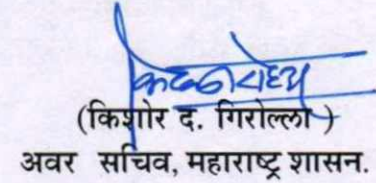 (किशोर द. गिरोल्ला )
अवर सचिव, महाराष्ट्र शासन.